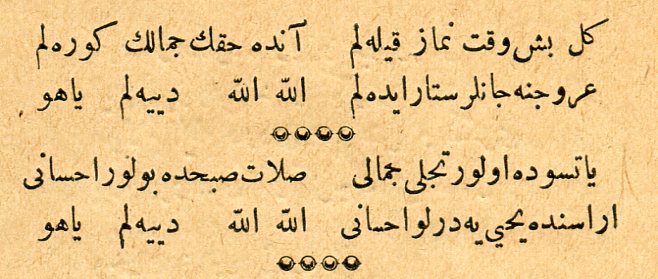 كل بش وقت نماز قيله لم آنده حقك جمالك كوره لم
عروجنه جانلر ستار ايده لم الله الله دييه لم ياهو
ياتسوده اولور تجلى جمالى صلات صبحده بولور احسانى
اراسنده يحيي يه درلو احسانى الله الله دييه لم ياهو